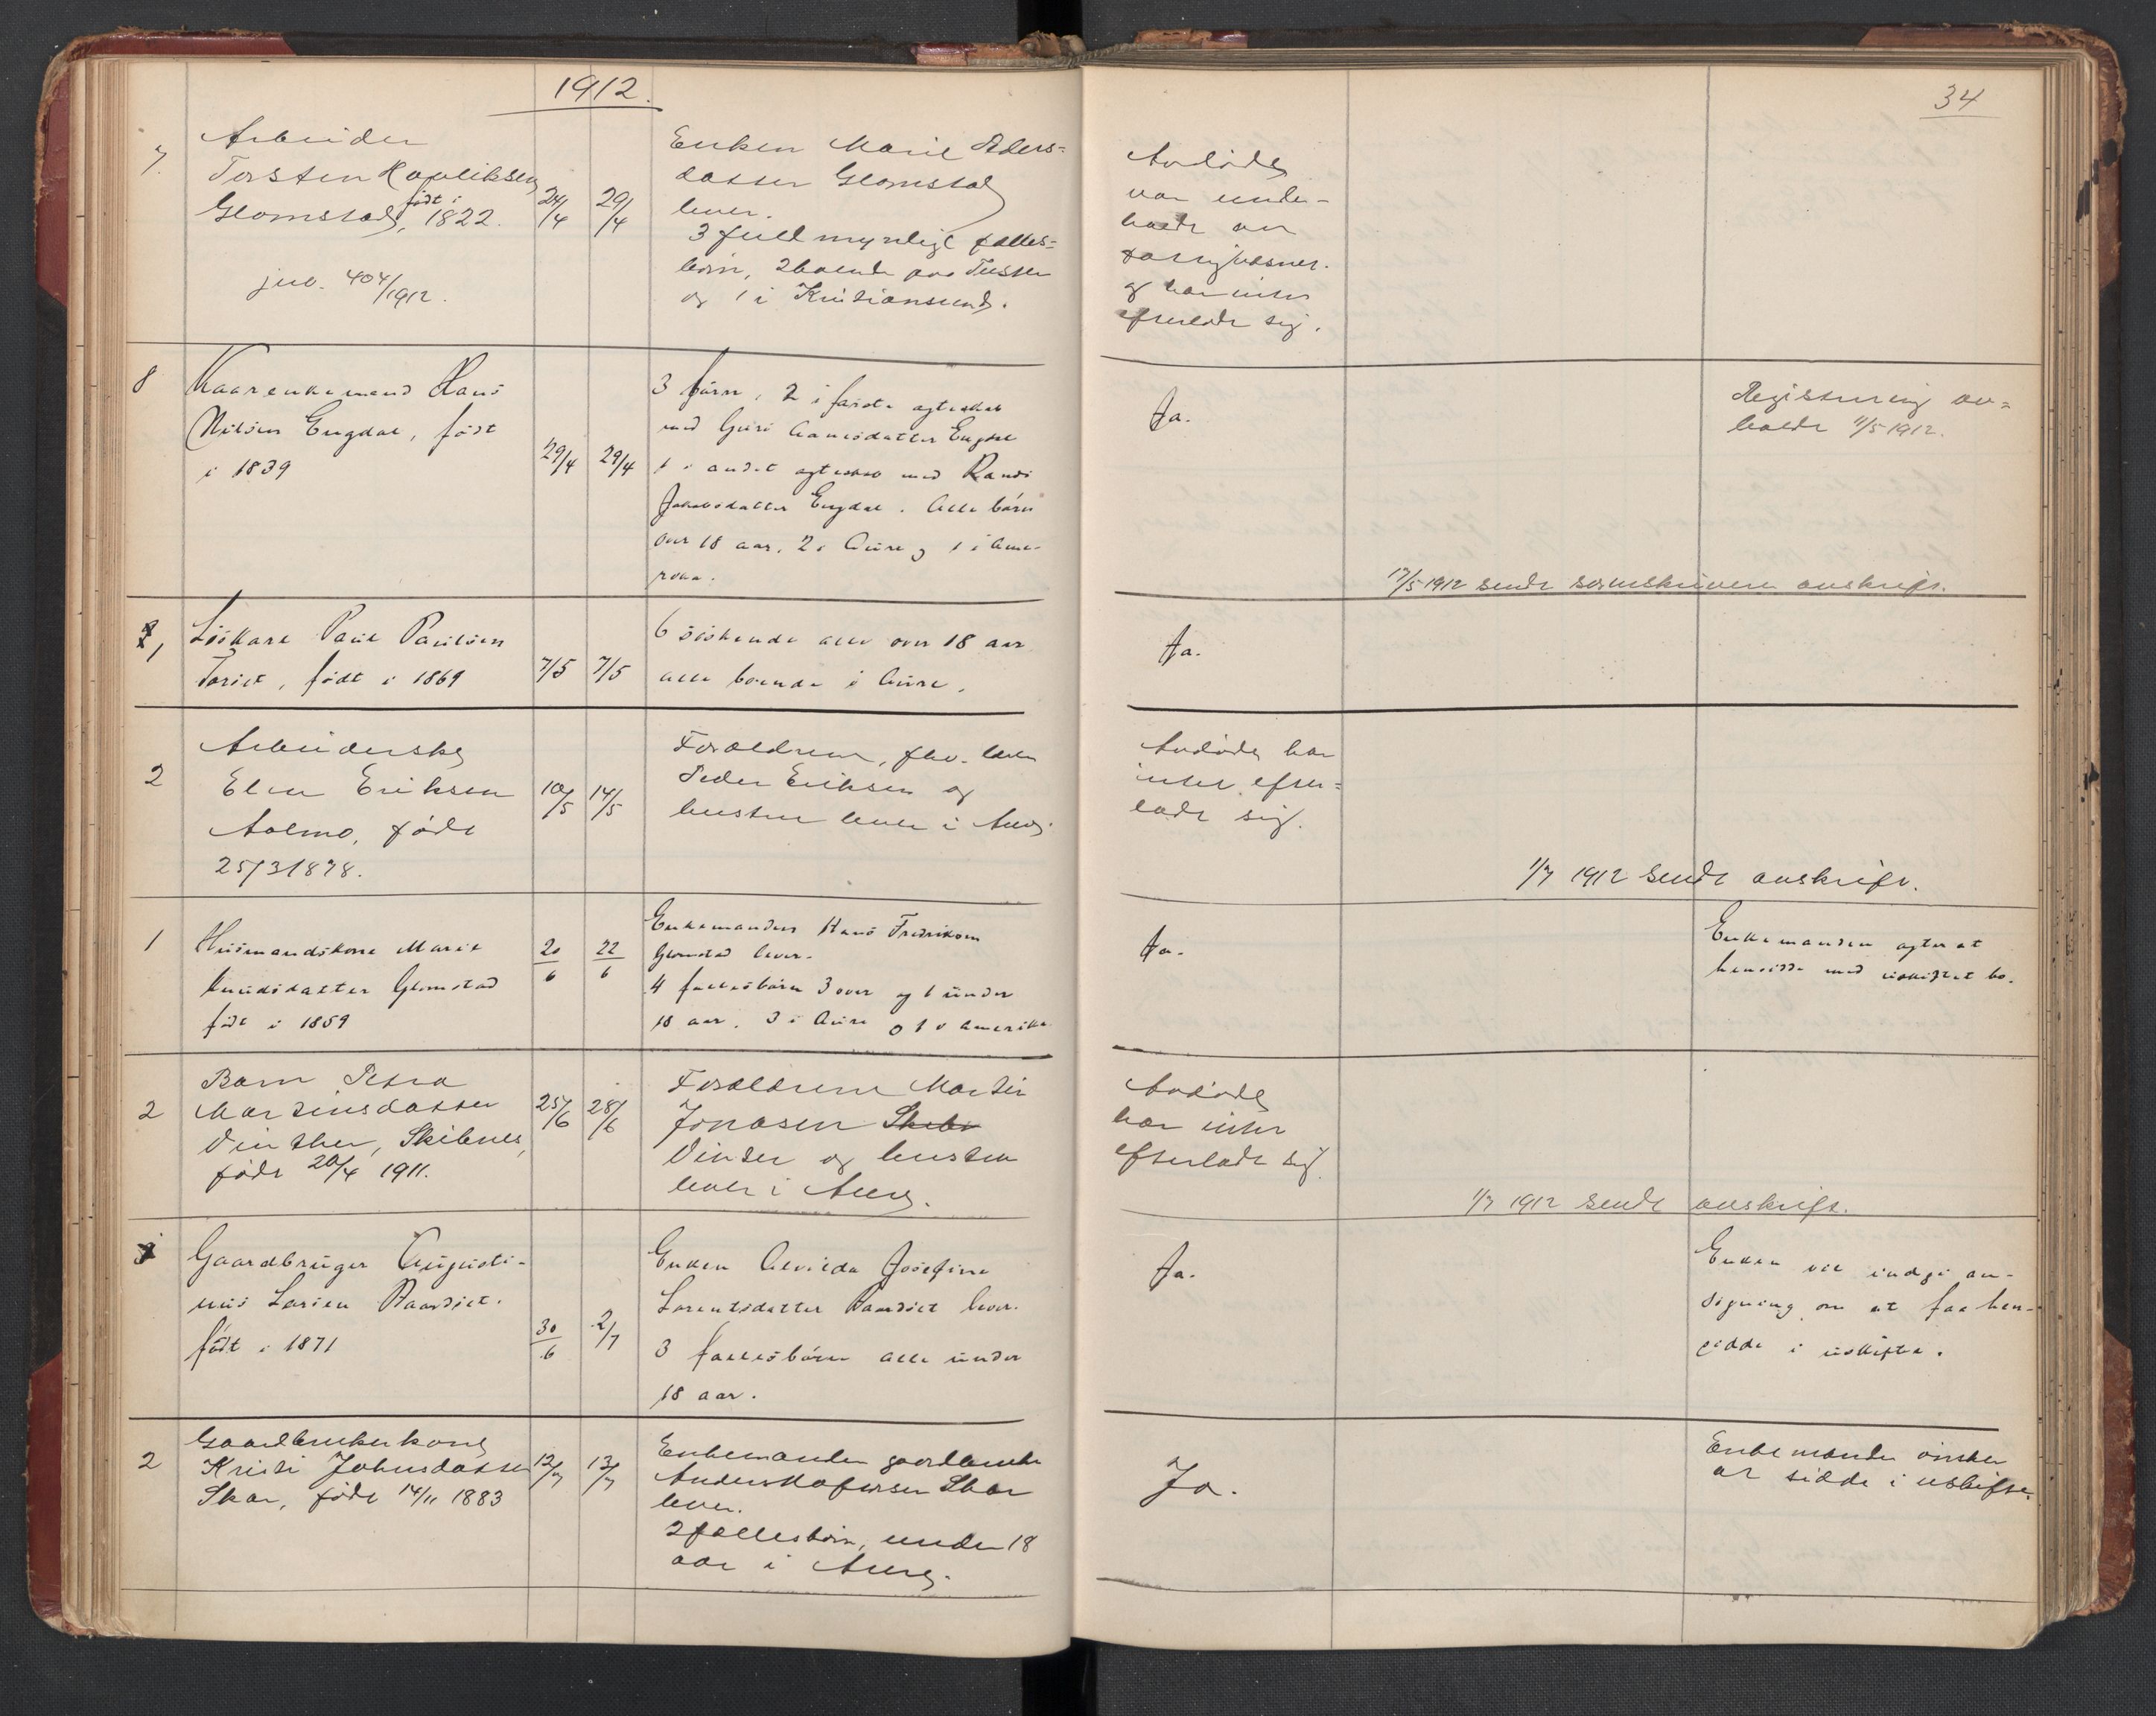 1912.
34
7.
Arbeider
Torsten
Glomstad, født i 1822.
jno. 404/1912.
24/4
29/4
Enken Marie Peders=
datter Glomstad
lever.
3 fuldmyndige fælles=
børn, 2 boende paa Tusten
og 1 i Kristiansund.
Avdøde
var under-
holdt av
fattigvæsnet
og har intet
efterladt sig.
8
Kaarenkemand Hans
Nilsen Engdal, født
i 1839
29/4
29/4
3 børn, 2 i første egteskab
med Guri Hansdatter Engdal
1 i andet egteskab med Randi
Jakobsdatter Engdal. Alle børn
over 18 aar, 2 i Aure og 1 i Ame-
rika.
Ja.
Registrering av=
holdt 11/5 1912.
17/5 1912 sendt sorenskriveren avskrift.
1
Löskarl Paul Paulsen
født i 1869
7/5
7/5
6 söskende alle over 18 aar
alle boende i Aure.
Ja.
2
Arbeiderske
Elen Eriksen
Aalmo, født
25/3 1878.
10/5
14/5
Forældrene, fhv. 
Peder Eriksen og
hustru lever i Aure.
Avdøde har
intet efter=
ladt sig.
1/7 1912 sendt avskrift.
1
Husmandskone Marie
Knudsdatter Glomstad
født i 1859
20/6
22/6
Enkemanden Hans Fredriksen
Glomstad lever.
4 fællesbörn 3 over og 1 under
18 aar. 3 i Aure og 1 i Amerika
Ja.
Enkemanden agter at
hensidde med uskiftet bo.
2
Barn Petra
Martinsdatter
Vinther, Skibnes,
født 20/4 1911.
25/6
28/6
Forældrene Martin
Jonasen Skibn
Vinter og hustru
lever i Aure.
Avdøde
har intet
efterladt sig.
1/7 1912 sendt avskrift.
Gaardbruger Augusti-
nus Larsen
født i 1871
30/6
2/7
Enken Alvilda Josefine
Lorentsdatter lever.
3 fællesbörn alle under
18 aar.
Ja.
Enken vil indgi an-
søgning om at faa hen-
sidde i uskifte.
2
Gaardbrukerkone
Kristi Johnsdatter
Skar, født 14/11 1883
12/7
13/7
Enkemanden gaardbruker
Anders Skar
lever.
2 fællesbørn, under 18
aar i Aure.
Ja.
Enkemanden ønsker
at sidde i uskifte.